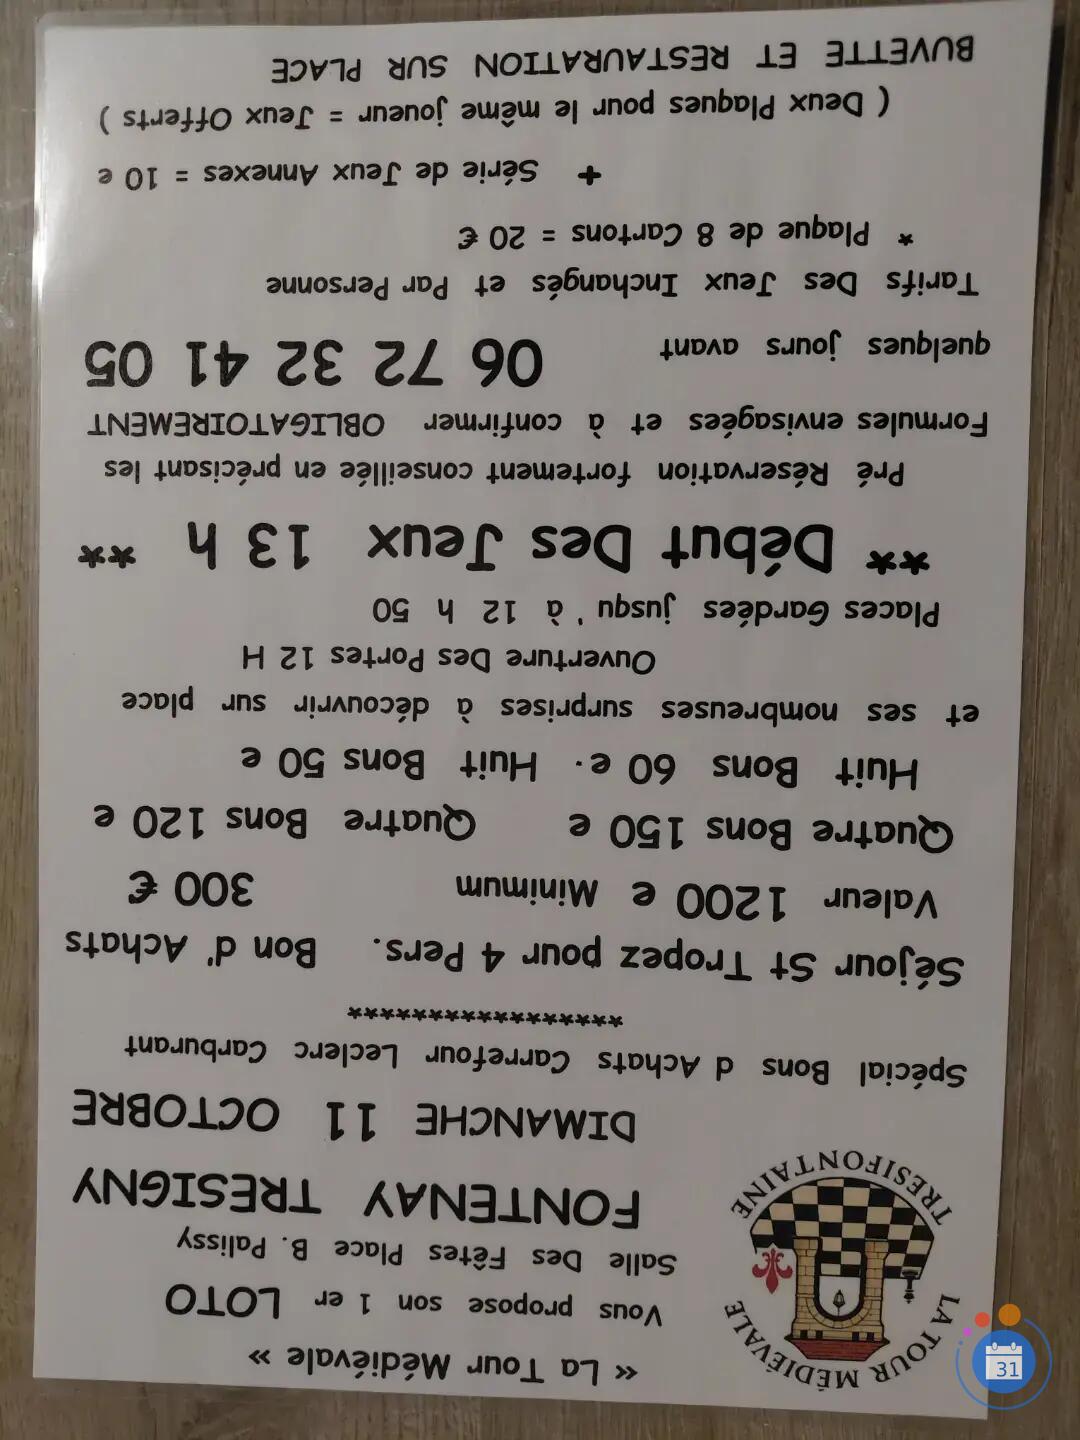 « La Tour Médiévale »
Vous propose son 1 er LOTO
Salle Des Fêtes Place B. Palissy
FONTENAY TRESIGNY
DIMANCHE 11 OCTOBRE
LA TOUR MÉDIÉVALE
TRESIFONTAINE
Spécial Bons d Achats Carrefour Leclerc Carburant
********************
Séjour St Tropez pour 4 Pers. Bon d' Achats
Valeur 1200 e Minimum 300 €
Quatre Bons 150 e Quatre Bons 120 e
Huit Bons 60 e. Huit Bons 50 e
et ses nombreuses surprises à découvrir sur place
Ouverture Des Portes 12 H
Places Gardées jusqu ' à 12 h 50
** Début Des Jeux 13 h **
Pré Réservation fortement conseillée en précisant les
Formules envisagées et à confirmer OBLIGATOIREMENT
quelques jours avant 06 72 32 41 05
Tarifs Des Jeux Inchangés et Par Personne
* Plaque de 8 Cartons = 20 €
+ Série de Jeux Annexes = 10 e
( Deux Plaques pour le même joueur = Jeux Offerts )
BUVETTE ET RESTAURATION SUR PLACE
31